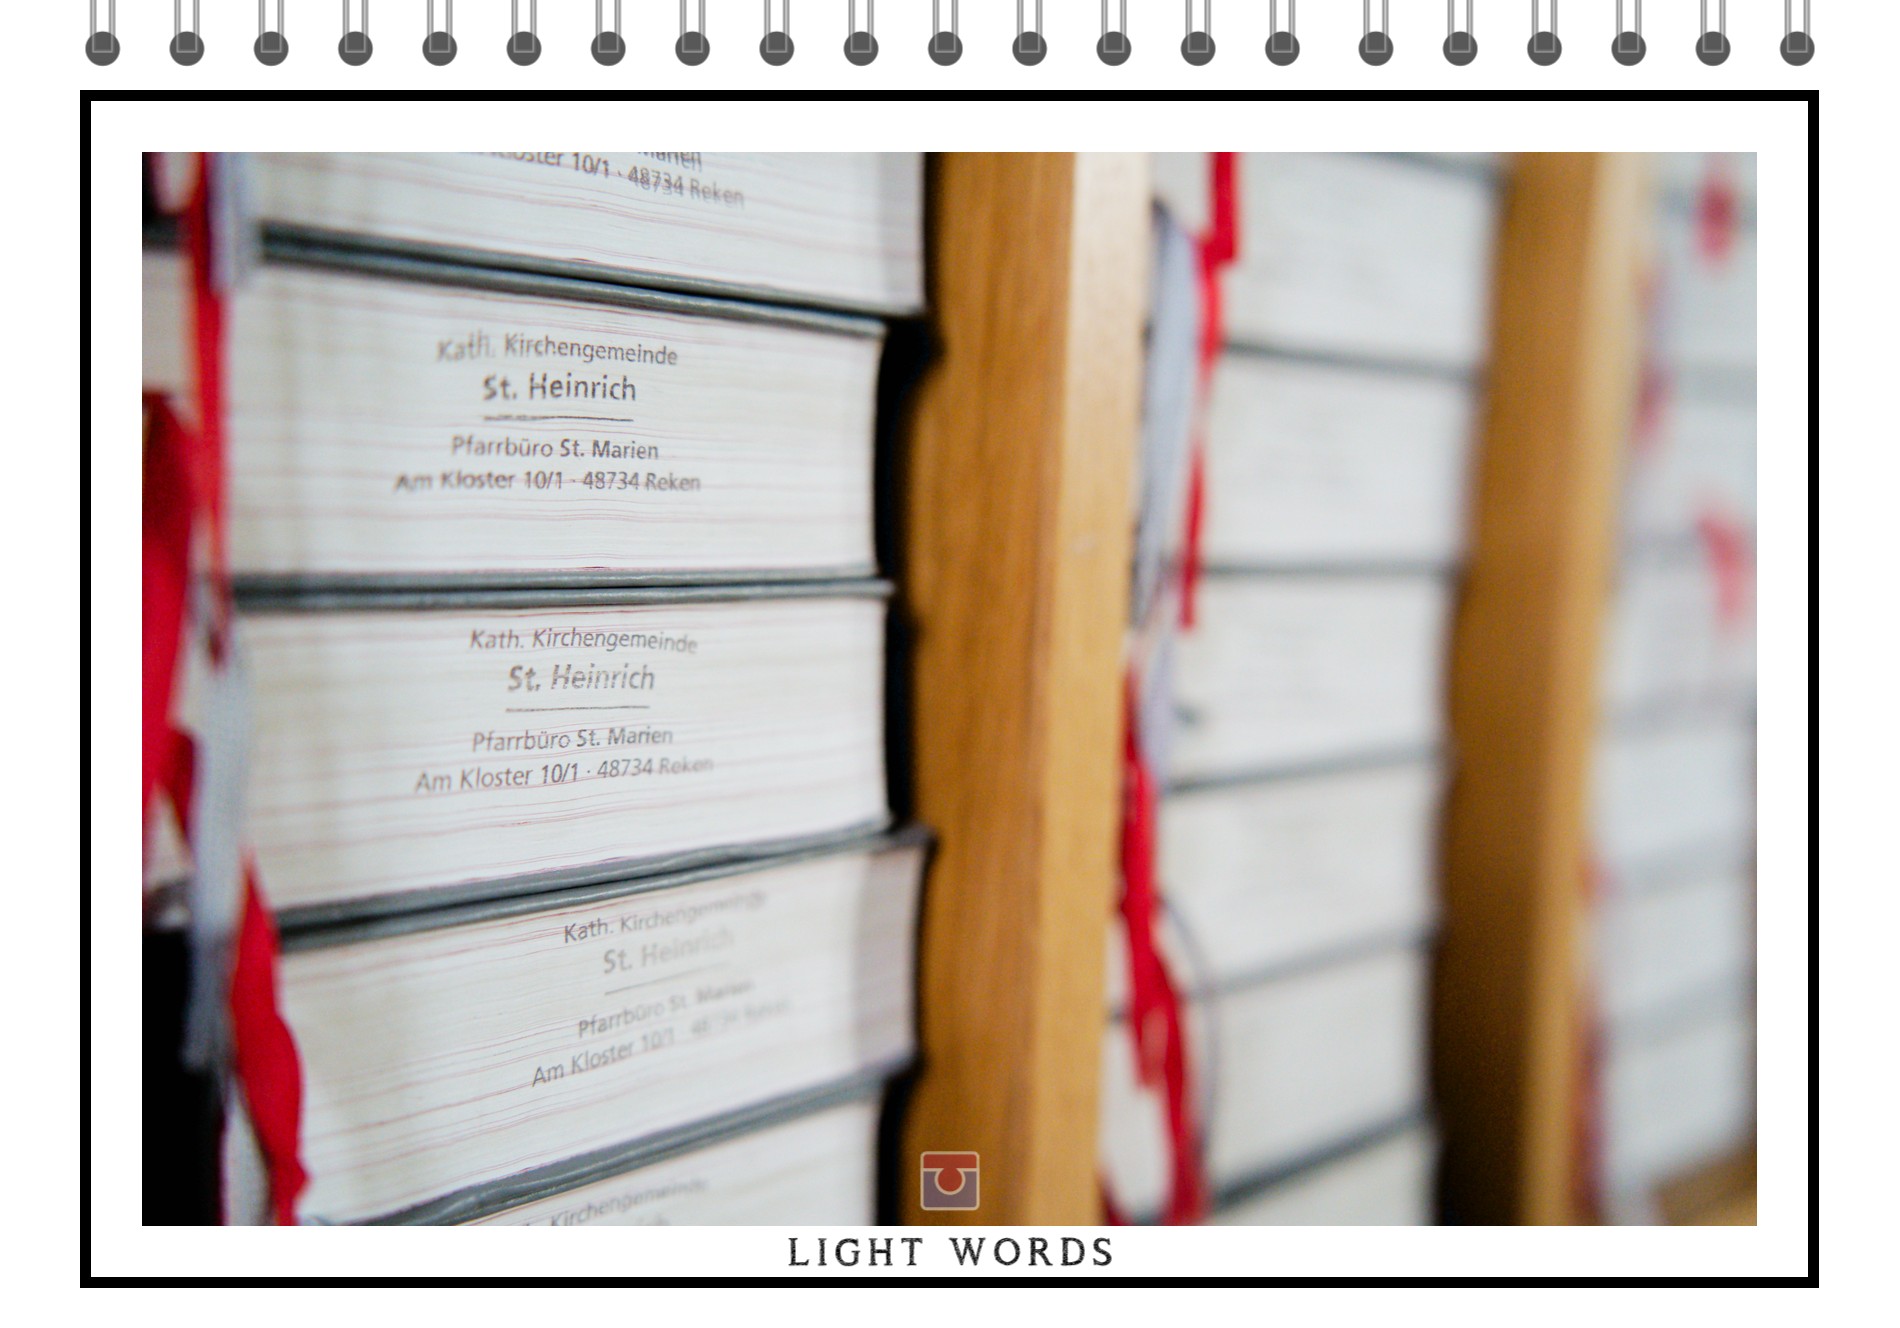 Kloster 10/1 · 48734 Reken
Kath. Kirchengemeinde
St. Heinrich
Pfarrbüro St. Marien
Am Kloster 10/1 · 48734 Reken
Kath. Kirchengemeinde
St. Heinrich
Pfarrbüro St. Marien
Am Kloster 10/1 · 48734 Reken
Kath. Kirchengemeinde
St. Heinrich
Pfarrbüro St. Marien
Am Kloster 10/1 · 48734 Reken
Kirchengemeinde
LIGHT WORDS